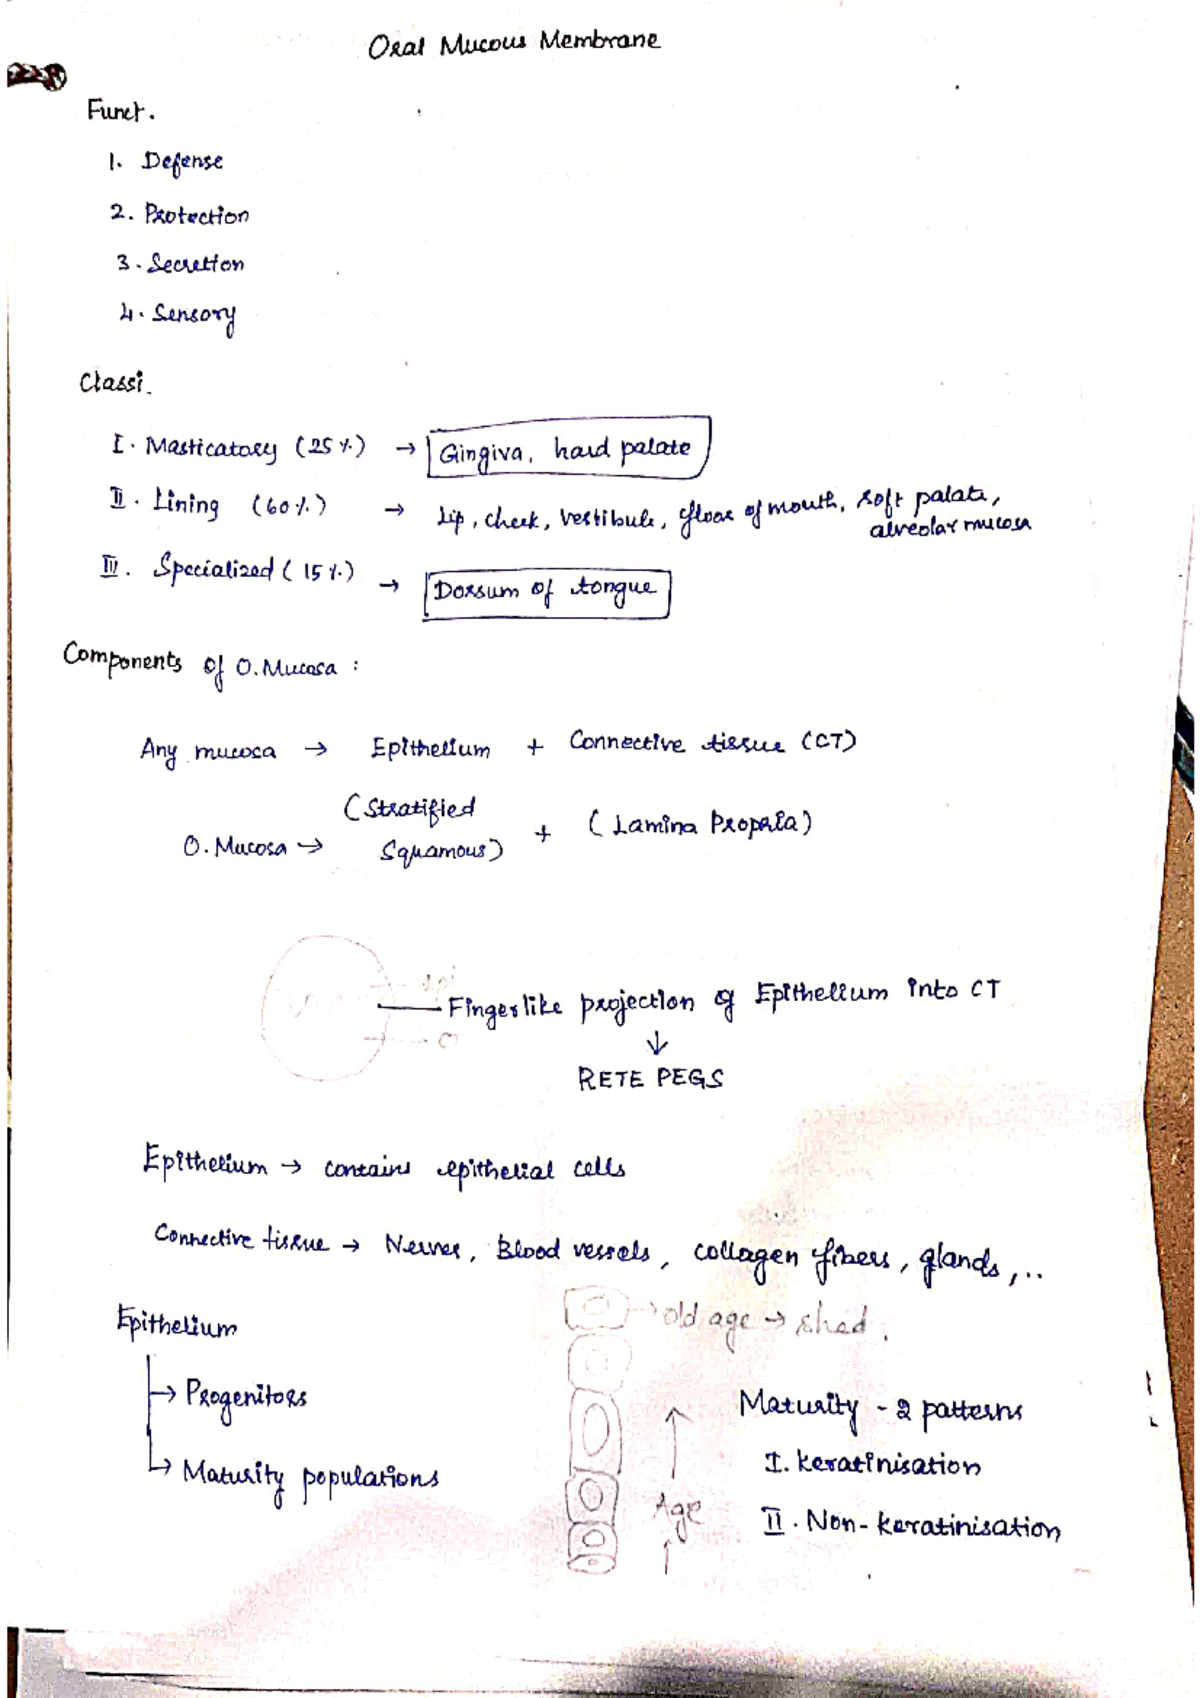 Oral Mucous Membrane
Funct.
1. Defense
2. Protection
3. Secretion
4. Sensory
Classi.
I. Masticatory (25%) → Gingiva, hard palate
II. Lining (60%) → Lip, cheek, vestibule, floor of mouth, soft palate,
alveolar mucosa
III. Specialized (15%) → Dorsum of tongue
Components of O.Mucosa :
Any mucosa → Epithelium + Connective tissue (CT)
O.Mucosa → (Stratified Squamous) + (Lamina Propria)
Fingerlike projection of Epithelium into CT
↓
RETE PEGS
Epithelium → contains epithelial cells
Connective tissue → Nerves, Blood vessels, collagen fibers, glands,..
→ old age → shed.
Epithelium
→ Progenitors
→ Maturity populations
Age
Maturity - 2 patterns
I. keratinisation
II. Non-keratinisation